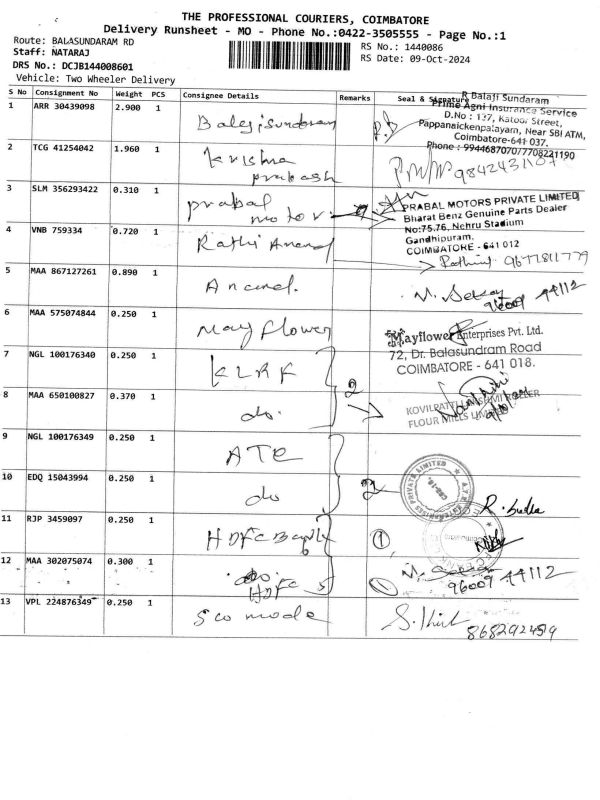 THE PROFESSIONAL COURIERS, COIMBATORE
Delivery Runsheet - MO - Phone No.:0422-3505555 - Page No.:1
Route: BALASUNDARAM RD
RS No.: 1440086
Staff: NATARAJ
RS Date: 09-Oct-2024
DRS No.: DCJB144008601
Vehicle: Two Wheeler Delivery
S No Consignment No Weight PCS Consignee Details Remarks Seal & Signature
R Balaji Sundaram
Prime Agni Insurance Service
D.No : 137, Katoor Street,
Pappanaickenpalayam, Near SBI ATM,
Coimbatore-641 037.
Phone : 9944687070/7708221190
1 ARR 30439098 2.900 1 Balajisundaram
2 TCG 41254042 1.960 1 Krishna
prakash
3 SLM 356293422 0.310 1 prabal
motor
PRABAL MOTORS PRIVATE LIMITED
Bharat Benz Genuine Parts Dealer
No:75,76, Nehru Stadium
Gandhipuram,
COIMBATORE - 641 012
4 VNB 759334 0.720 1 Rathi Anand
5 MAA 867127261 0.890 1 Anand.
96009 44112
6 MAA 575074844 0.250 1 May flower
Mayflower Enterprises Pvt. Ltd.
72, Dr. Balasundram Road
COIMBATORE - 641 018.
7 NGL 100176340 0.250 1 KLRF
2
8 MAA 650100827 0.370 1 do.
KOVILPATTI LAKSHMI ROLLER
FLOUR MILLS LIMITED
9 NGL 100176349 0.250 1 ATE
10 EDQ 15043994 0.250 1 do
2
11 RJP 3459097 0.250 1 HDFC Bank
1
12 MAA 302075074 0.300 1 do
HDFC
96009 44112
13 VPL 224876349 0.250 1 Sco mode
8682924519